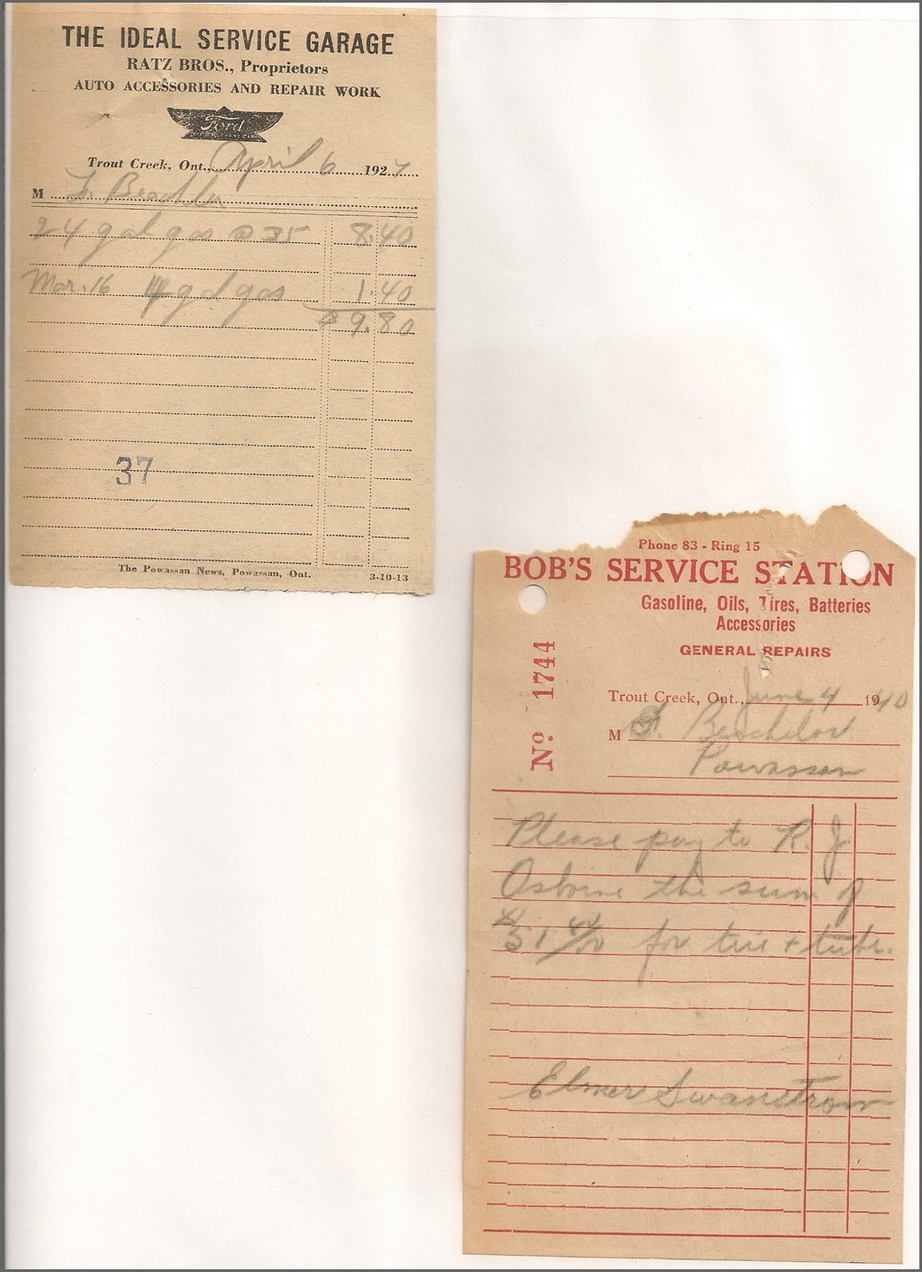 THE IDEAL SERVICE GARAGE
RATZ BROS., Proprietors
AUTO ACCESSORIES AND REPAIR WORK
Ford
Trout Creek, Ont., April 6 1927
M
24 gal gas @ 35 8.40
Mar. 16 4 gal gas 1.40
$9.80
37
The Powassan News, Powassan, Ont. 3-10-13
Phone 83 - Ring 15
BOB'S SERVICE STATION
Gasoline, Oils, Tires, Batteries
Accessories
GENERAL REPAIRS
No 1744
Trout Creek, Ont., June 4 1940
M Bechelor
Powassan
Please pay to R. J.
Osborne the sum of
for tire + tube.
Elmer Swanstrom